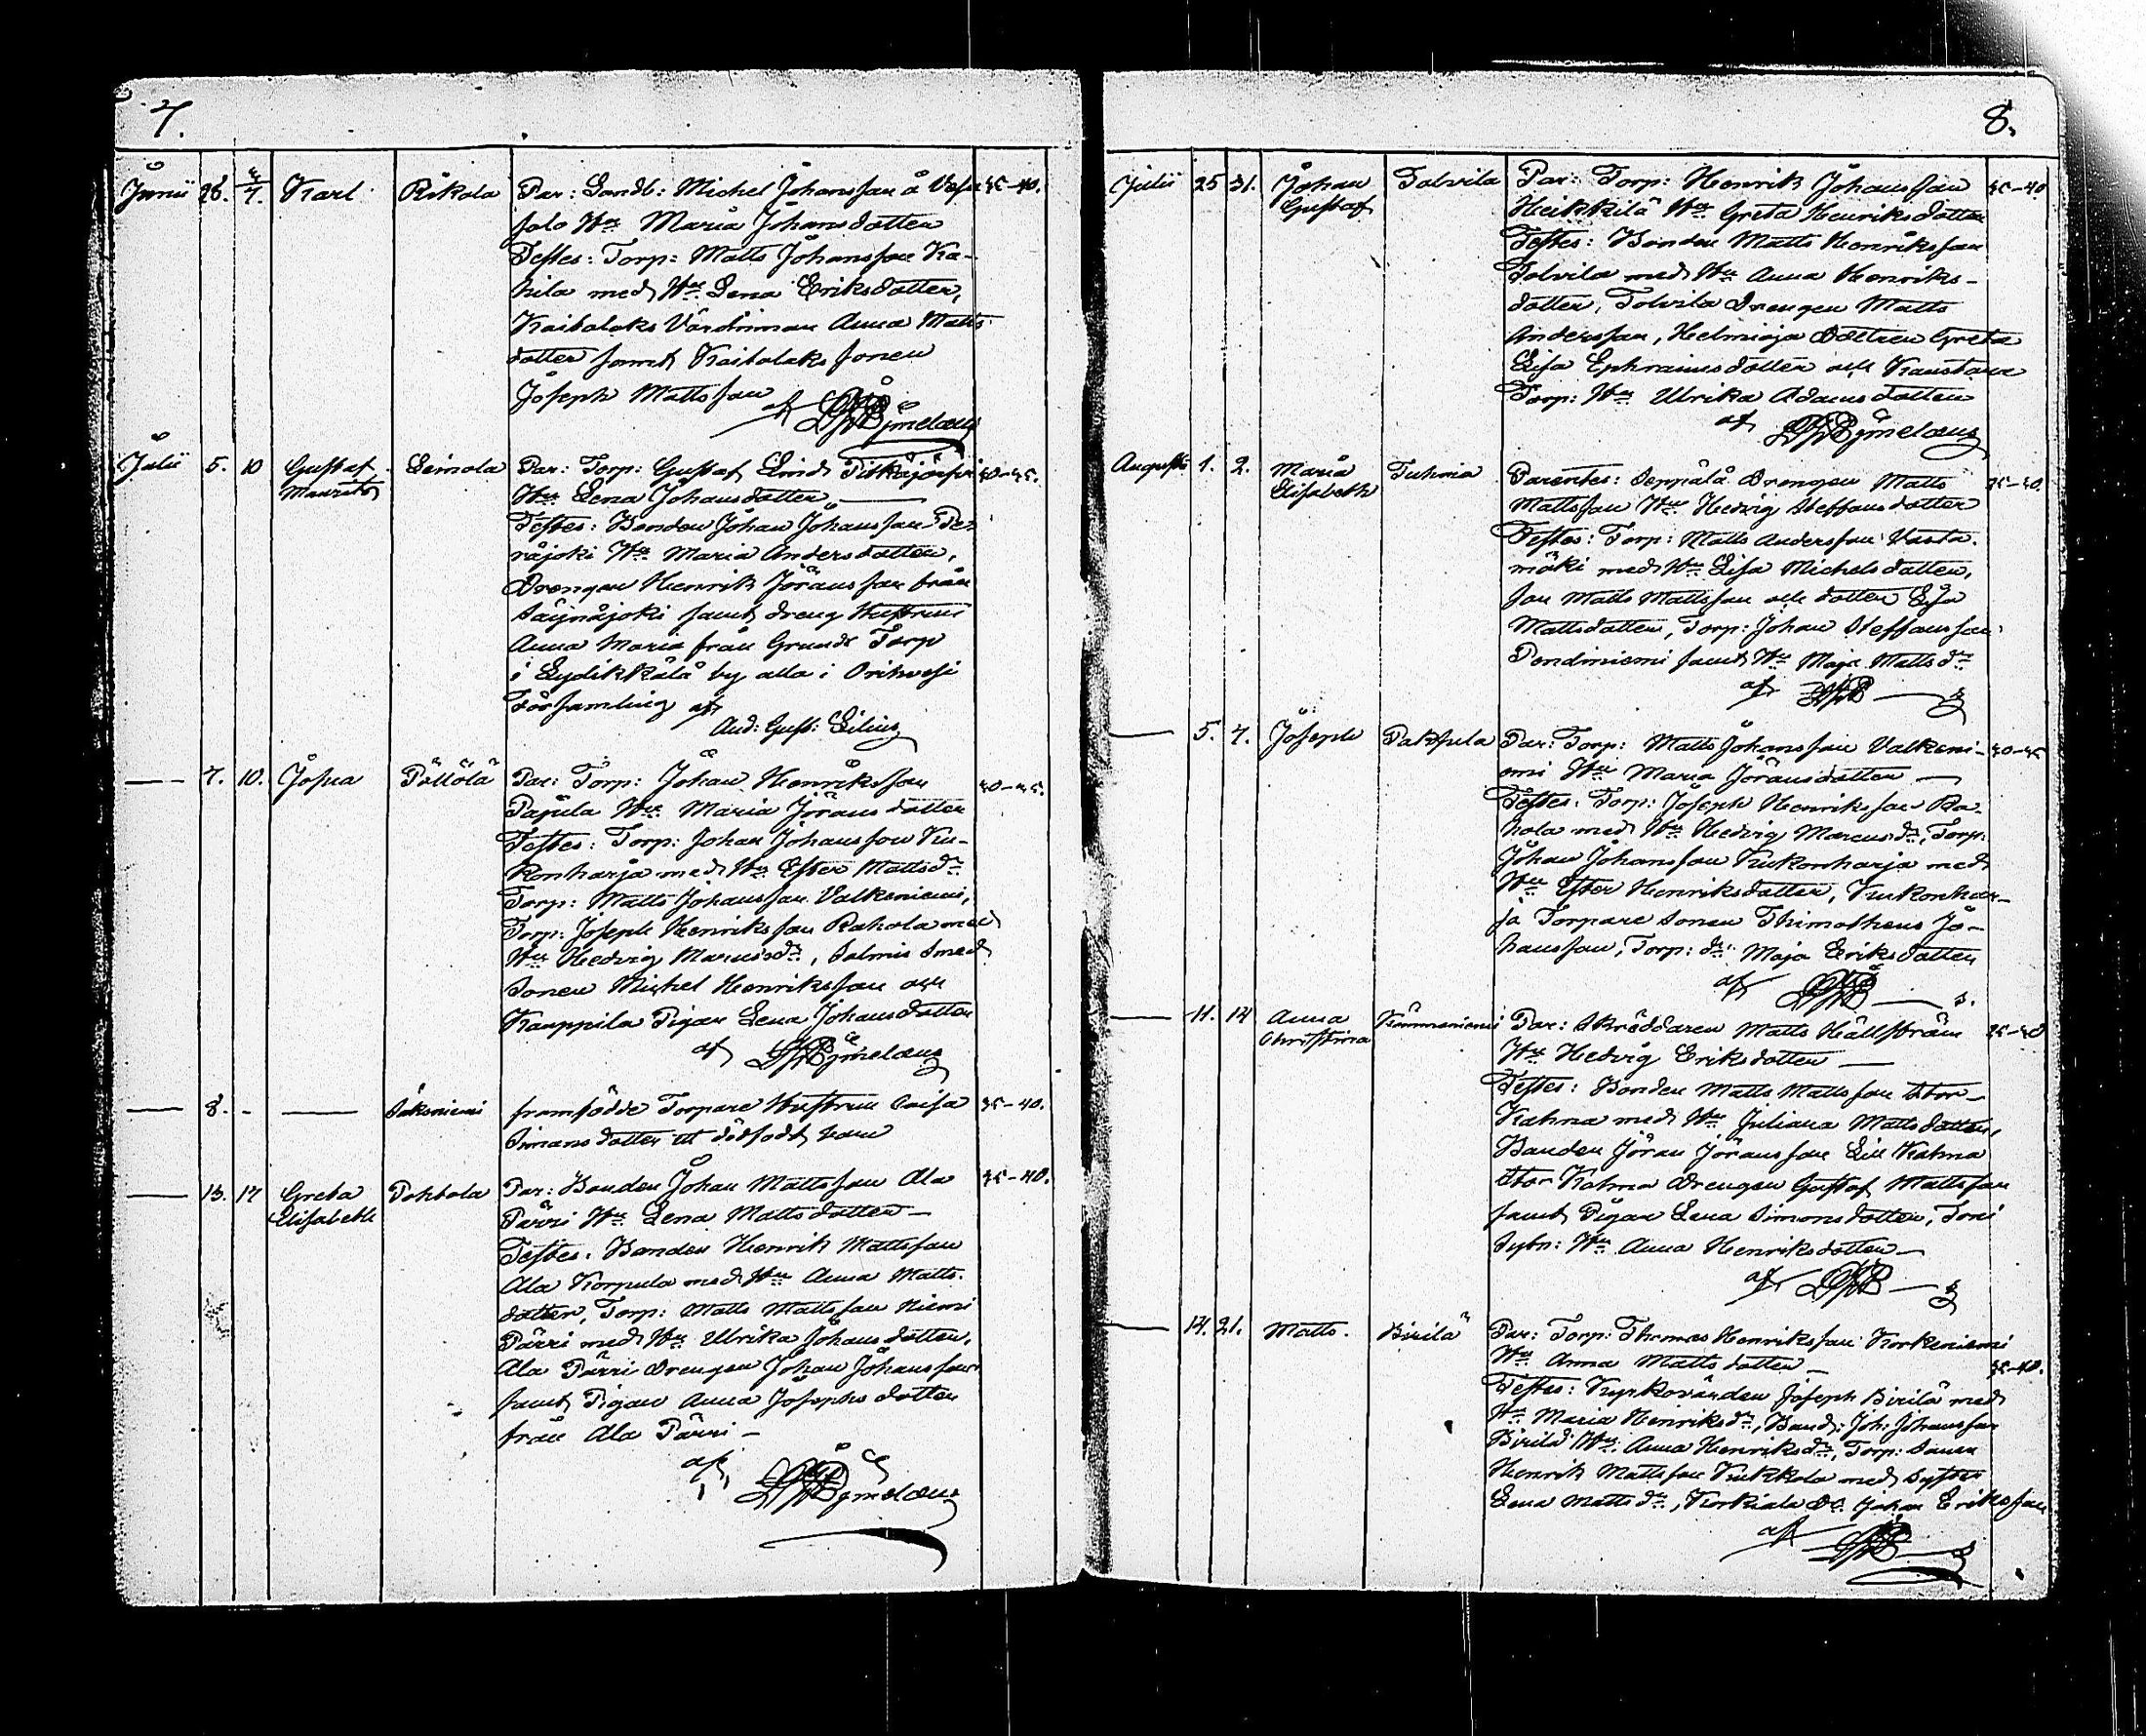 7.
Junii 28. 4/7. Karl Rikala Par: Landb: Michel Johansson å Vesa 35-40.
salo Hu Maria Johansdotter
Testes: Torp: Matts Johansson Ka-
hila med Hu Lena Eriksdotter,
Kaitalaks Värdinnan Anna Matts
dotter samt Kaitalaks sonen
Joseph Mattsson
af
Julii 5. 10 Gustaf Leinola Par: Torp: Gustaf Lind Pitkäjärvi 30-35.
Mauritz Hu Lena Johansdotter
Testes: Bonden Johan Johansson Pe-
räjoki Hu Maria Andersdotter,
Drengen Henrik Jöransson från
Säynäjoki samt dreng Hustrun
Anna Maria från Grunds Torp
i Lydikkälä by alla i Orihvesi
Församling af
And: Gust: Lilius
— 7. 10. Josua Pöllölä Par: Torp: Johan Henriksson 30-35.
Pajula Hu Maria Jöransdotter
Testes: Torp: Johan Johansson Ku-
konharja med Hu Ester Mattsdr
Torp: Matts Johansson Valkeniemi,
Torp: Joseph Henriksson Rahola med
Hu Hedvig Marcusdr, Salmis smed
sonen Michel Henriksson och
Kauppila Pigan Lena Johansdotter
af
— 8. - — Säkoniemi framfödde Torpare Hustrun Caisa 35-40.
Simonsdotter ett dödfödt barn
— 13. 17 Greta Pohtola Par: Bonden Johan Mattsson Ala 35-40.
Elisabeth Pärri Hu Lena Mattsdotter —
Testes: Bonden Henrik Mattsson
Ala Korpula med Hu Anna Matts-
dotter, Torp: Matts Mattsson Niemi
Pärri med Hu Ulrika Johansdotter,
Ala Pärri Drengen Johan Johansson
samt Pigan Anna Josephsdotter
från Ala Pärri —
af
8.
Julii 25 31. Johan Talvila Par: Torp: Henrik Johansson 35-40
Gustaf Heikkilä Hu Greta Henriksdotter
Testes: Bonden Matts Henriksson
Talvila med Hu Anna Henriks-
dotter, Talvila Drengen Matts
Andersson, Helminoja Dottren Greta
Lisa Ephraimsdotter och Kaustara
Torp: Hu Ulrika Adamsdotter
af
Augusti 1. 2. Maria Tuhria Parentes: Seppälä Drengen Matts 35-40.
Elisabeth Mattsson Hu Hedvig Steffansdotter
Testes: Torp: Matts Andersson Vasta-
mäki med Hu Lisa Michelsdotter,
son Matts Mattsson och dotter Lisa
Mattsdotter, Torp: Johan Steffansson
Pendiniemi samt Hu Maja Mattsdr
af
— 5. 7. Joseph Pakkula Par: Torp: Matts Johansson Valkeni- 30-35
emi Hu Maria Jöransdotter —
Testes: Torp: Joseph Henriksson Ra-
hola med Hu Hedvig Marcusdr, Torp:
Johan Johansson Kukonharja med
Hu Ester Henriksdotter, Kukonhar-
ja Torpare sonen Thimotheus Jo-
hansson, Torp: dr Maja Eriksdotter
af
— 11. 14 Anna Kämmeniemi Par: Skräddaren Matts Hällström 35-40
Christina Hu Hedvig Eriksdotter —
Testes: Bonden Matts Mattsson Stor-
Kahma med Hu Juliana Mattsdotter,
Bonden Jöran Jöransson Lill Kahma
Stor Kahma Drengen Gustaf Mattsson
samt Pigan Lena Simonsdotter, Toni
Sytn: Hu Anna Henriksdotter —
af
— 14. 21. Matts. Birilä Par: Torp: Thomas Henriksson Korkeniemi
Hu Anna Mattsdotter — 35-40.
Testes: Kyrkovärden Joseph Birilä med
Hu Maria Henriksdr, Bond: Joh: Johansson
Birilä Hu Anna Henriksdr, Torp: Sonen
Henrik Mattsson Kukkola med Syster
Lena Mattsdr, Korkiala Dr: Johan Eriksson
af